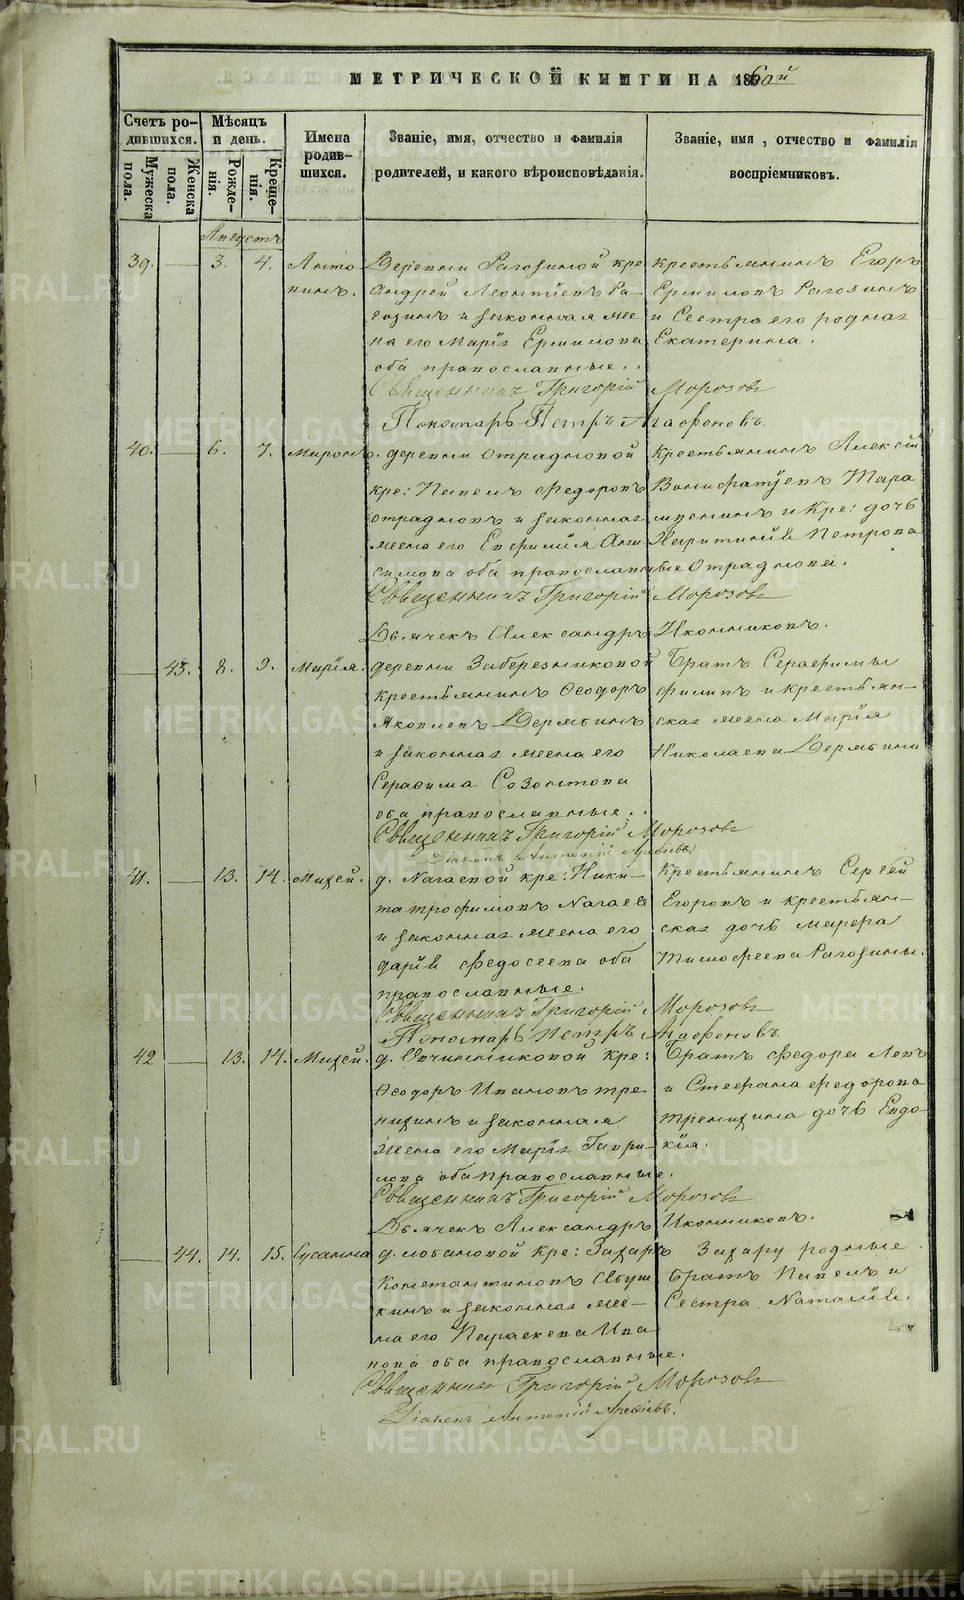 МЕТРИЧЕСКОЙ КНИГИ НА 1860й
Счетъ ро-
дившихся.
Мужеска
пола.
Женска
пола.
Мѣсяцъ
и день.
Рожде-
нія.
Креще-
нія.
Имена
родив-
шихся.
Званіе, имя, отчество и фамилія
родителей, и какого вѣроисповѣданія.
Званіе, имя, отчество и фамилія
воспріемниковъ.
Августъ
39. 3. 4. Анто
нинъ.
Деревни Рагозиной кре
Андрей Леонтіевъ Ра-
гозинъ и законная же
на его Марія Ермилова
оба православные.
крестьянинъ Егоръ
Ермиловъ Рагозинъ
и Сестра его родная
Екатерина.
Священникъ Григорій Морозовъ
Пономарь Петръ Агафоновъ.
40. 6. 7. Миронъ.
деревни Отрадновой
кре: Павелъ Федоровъ
Отрадновъ и законная
жена его Евфимія
симова оба православные
Крестьянинъ Алексій
Вонифатуевъ Тара
и Кре: дочь
Петрова
Отраднова.
Священникъ Григорій Морозовъ
Дьячекъ Александръ Иконниковъ.
43. 8. 9. Марія.
деревни Заберезниковой
крестьянинъ Ѳеодоръ
Яковлевъ Дерябинъ
и законная жена его
Серафима Созонтова
оба православные.
Братъ Серафимы
Филипъ и крестьян-
ская жена Марія
Николаева Дерябина
Священникъ Григорій Морозовъ
Діаконъ Антоній
41. 13. 14. Михей.
д. Нагаевой кре: Ники-
та Трофимовъ Нагаев
и законная жена его
Дарія Федосеева оба
православные.
Крестьянинъ Сергей
Егоровъ и крестьян-
ская дочь
Тимофеева Рагозины.
Священникъ Григорій Морозовъ
Пономарь Петръ Агафоновъ.
42 13. 14. Михей.
д. Овчинниковой кре:
Ѳеодоръ Ивановъ Тре
нихинъ и законная
жена его Марія Гаври-
лова оба православные.
Братъ Федора Лев
и Стефана Федорова
Тренихина дочь Евдо-
кія.
Священникъ Григорій Морозовъ
Дьячекъ Александръ Иконниковъ.
44. 14. 15. Сусанна
д. Лобановой кре: Захаръ
Константиновъ
кинъ и законная же-
на его Параскева Ива
нова оба православные.
Захару родные
Братъ Павелъ и
Сестра Наталія.
Священникъ Григорій Морозовъ
Діаконъ Антоній
METRIKI.GASO-URAL.RU